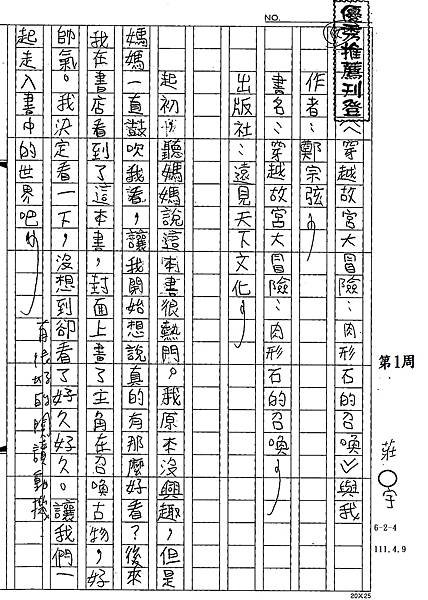 NO.
優秀推薦刊登
第1周
莊○宇
6-2-4
111.4.9
︿穿越故宮大冒險：肉形石的召喚﹀與我
作者：鄭宗弦
書名：穿越故宮大冒險：肉形石的召喚
出版社：遠見天下文化
起初聽媽媽說這本書很熱門。我原本沒興趣，但是
媽媽一直鼓吹我看，讓我開始想說真的有那麼好看？後來
我在書店看到了這本書，封面上畫了主角在召喚古物，好
帥氣。我決定看一下，沒想到卻看了好久好久。讓我們一
起走入書中的世界吧
有很好的閱讀動機
20X25